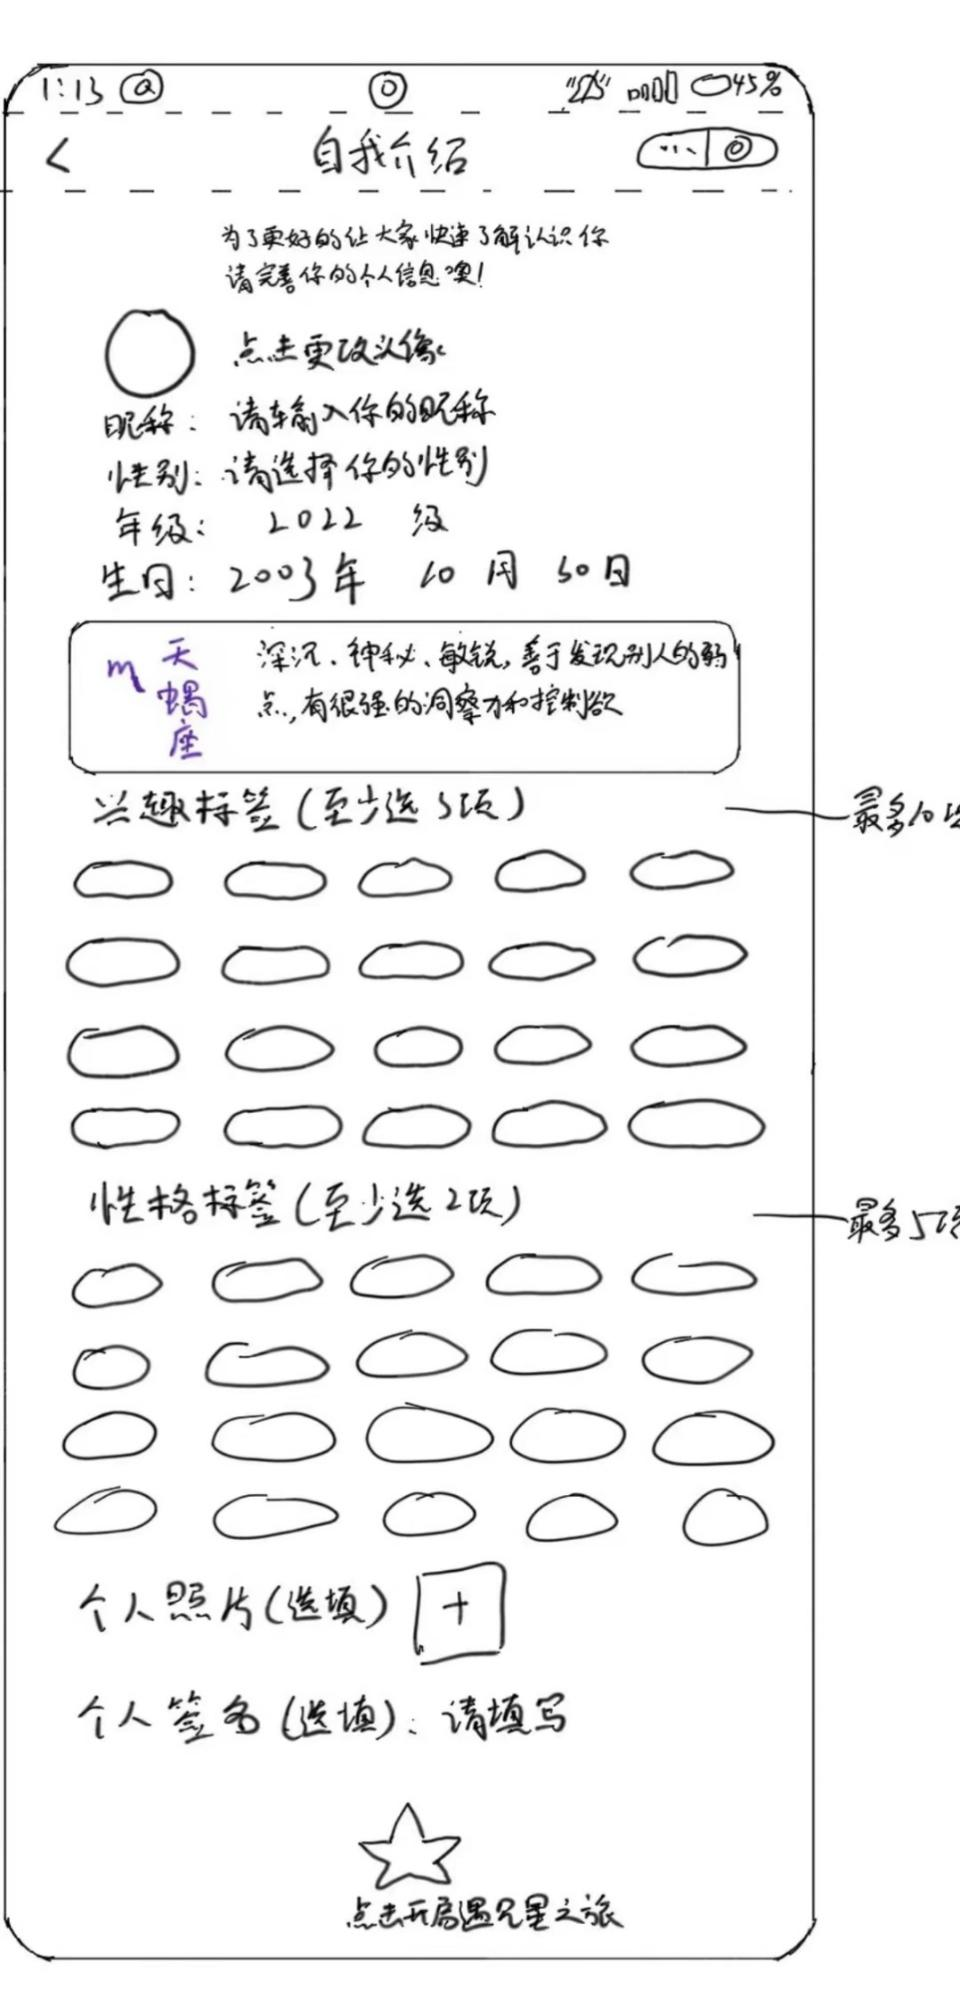 1:13
45%
自我介绍
为了更好的让大家快速了解认识你
请完善你的个人信息噢!
点击更改头像
昵称: 请输入你的昵称
性别: 请选择你的性别
年级: 2022 级
生日: 2003年 10月 30日
天蝎座
深沉、神秘、敏锐,善于发现别人的弱
点,有很强的洞察力和控制欲
兴趣标签(至少选3项)
最多10
性格标签(至少选2项)
最多5项
个人照片(选填) +
个人签名(选填): 请填写
点击开启遇见星之旅